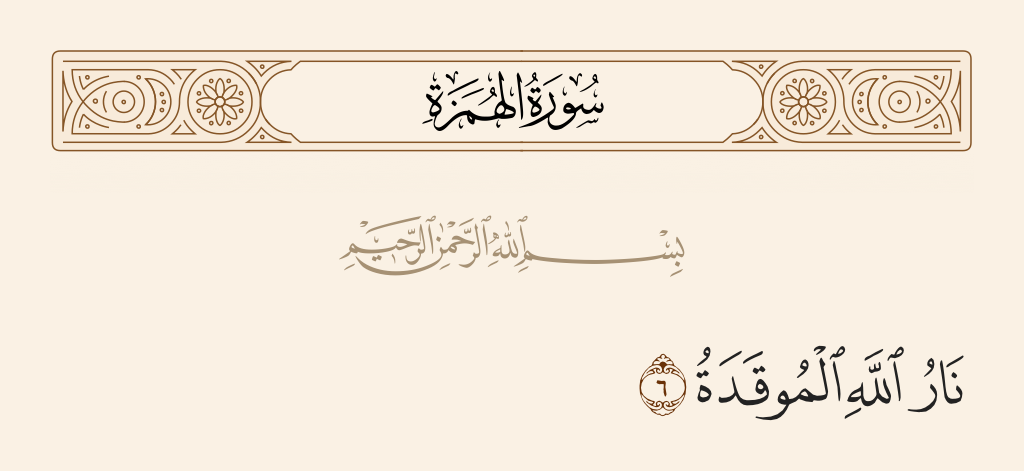 سُورَةُ الهُمَزَةِ
بِسْمِ ٱللَّهِ ٱلرَّحْمَٰنِ ٱلرَّحِيمِ
نَارُ ٱللَّهِ ٱلْمُوقَدَةُ ٦